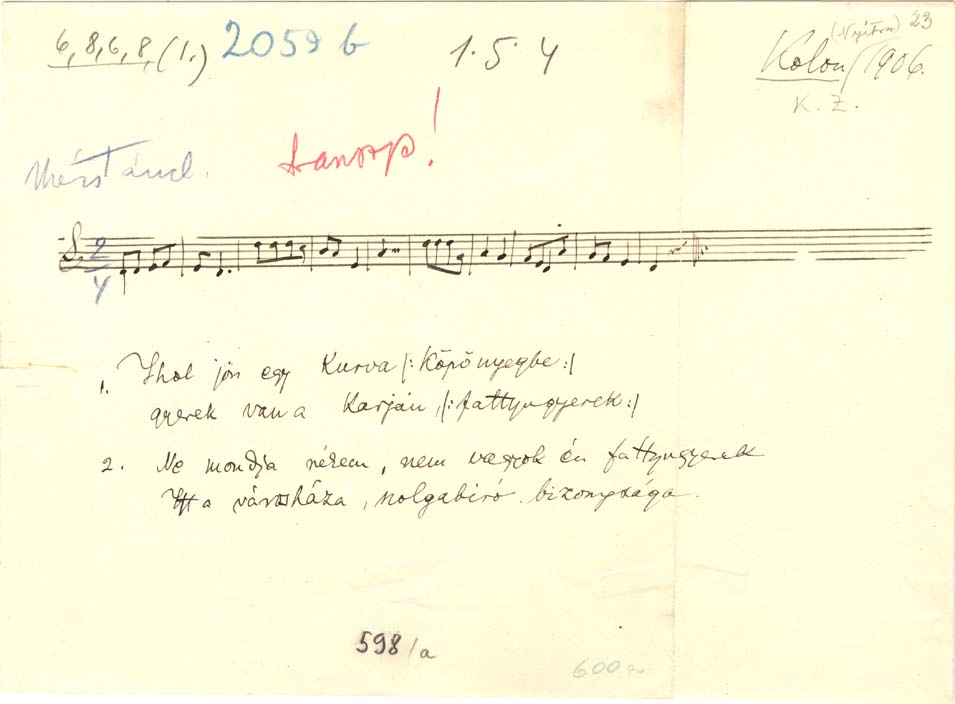 6, 8, 6, 8, (1.) 2059 b 1. 5. 4
(Nyitra) 23
Kolon 1906.
K. Z.
2/4
1. Ihol jön egy kurva |: köpönyegbe :|
gyerek van a karján, |: fattyugyerek :|
2. Ne mondja nézem, nem vagyok én fattyugyerek
Itt a városháza, szolgabiró bizonysága.
598/a
600a